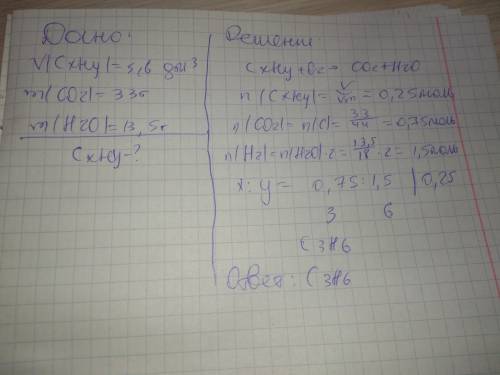 Дано:
V(CxHy)=5,6 дм³
m(CO2)=33г
m(H2O)=13,5г
CxHy-?
Решение
CxHy+O2→ CO2+H2O
n(CxHy)= V/Vm =0,25моль
n(CO2)=n(C)= 33/44 =0,75моль
n(H2)=n(H2O)·2= 13,5/18 ·2=1,5моль
x:y= 0,75:1,5 |0,25
3 6
C3H6
Ответ: C3H6